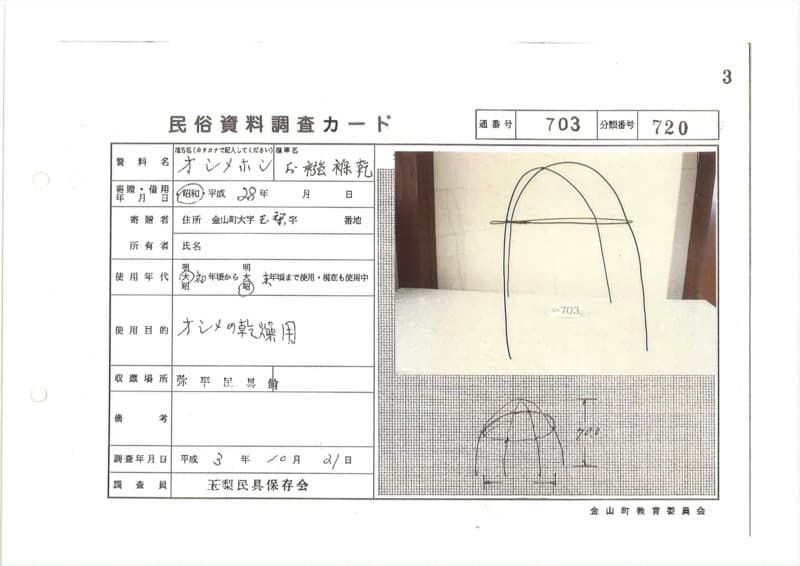 3
民俗資料調査カード
通番号 703 分類番号 720
資料名 地方名(カタカナで記入してください) 標準名
オシメホシ お襁褓乾
寄贈・借用年月日 昭和・平成 28年 月 日
寄贈者 住所 金山町大字玉梨字 番地
所有者 氏名
使用年代 明大昭 初年頃から 明大昭 末年頃まで使用・現在も使用中
使用目的 オシメの乾燥用
収蔵場所 弥平民具館
備考
調査年月日 平成 3年 10月 21日
調査員 玉梨民具保存会
703
70.0
金山町教育委員会